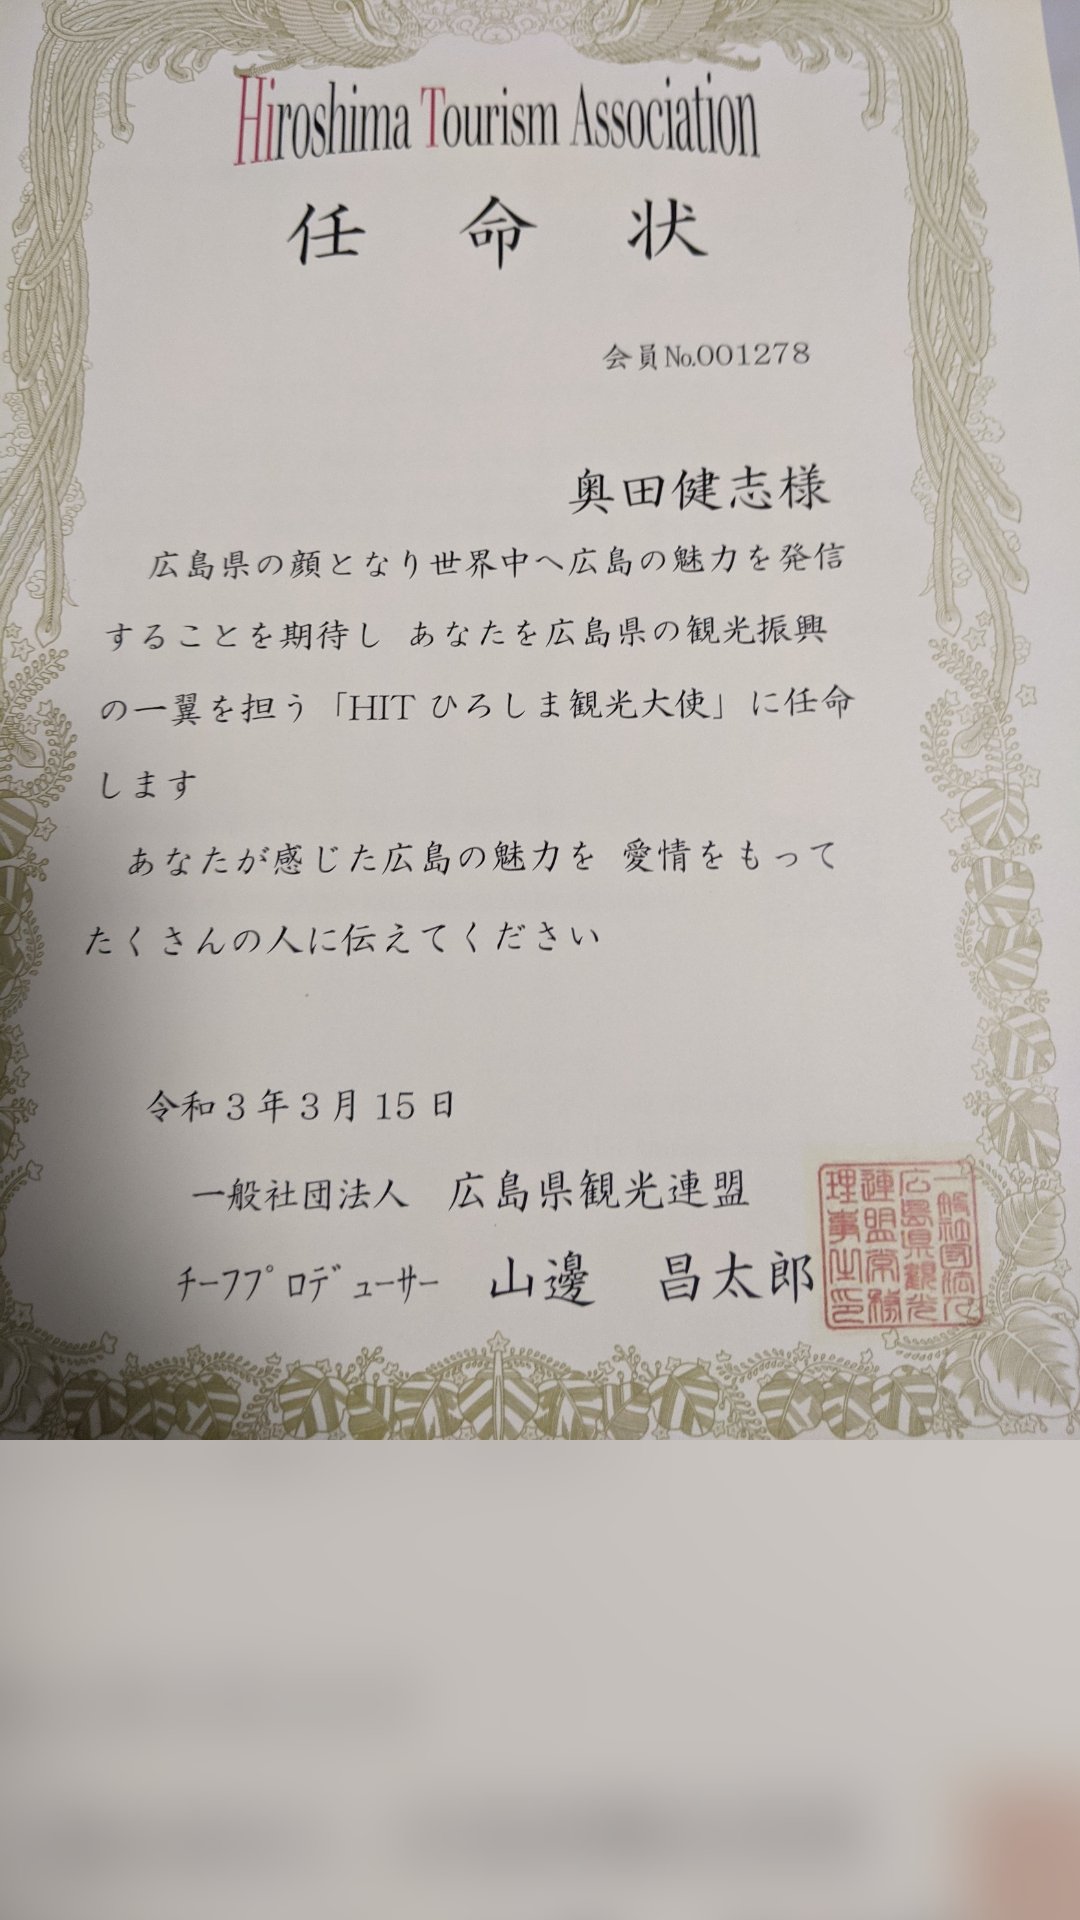 Hiroshima Tourism Association
任命状
会員No.001278
奥田健志様
広島県の顔となり世界中へ広島の魅力を発信
することを期待し あなたを広島県の観光振興
の一翼を担う「HITひろしま観光大使」に任命
します
あなたが感じた広島の魅力を 愛情をもって
たくさんの人に伝えてください
令和3年3月15日
一般社団法人 広島県観光連盟
ﾁｰﾌﾌﾟﾛﾃﾞｭｰｻｰ 山邊 昌太郎
一般社団法人
広島県観光
連盟常務
理事之印